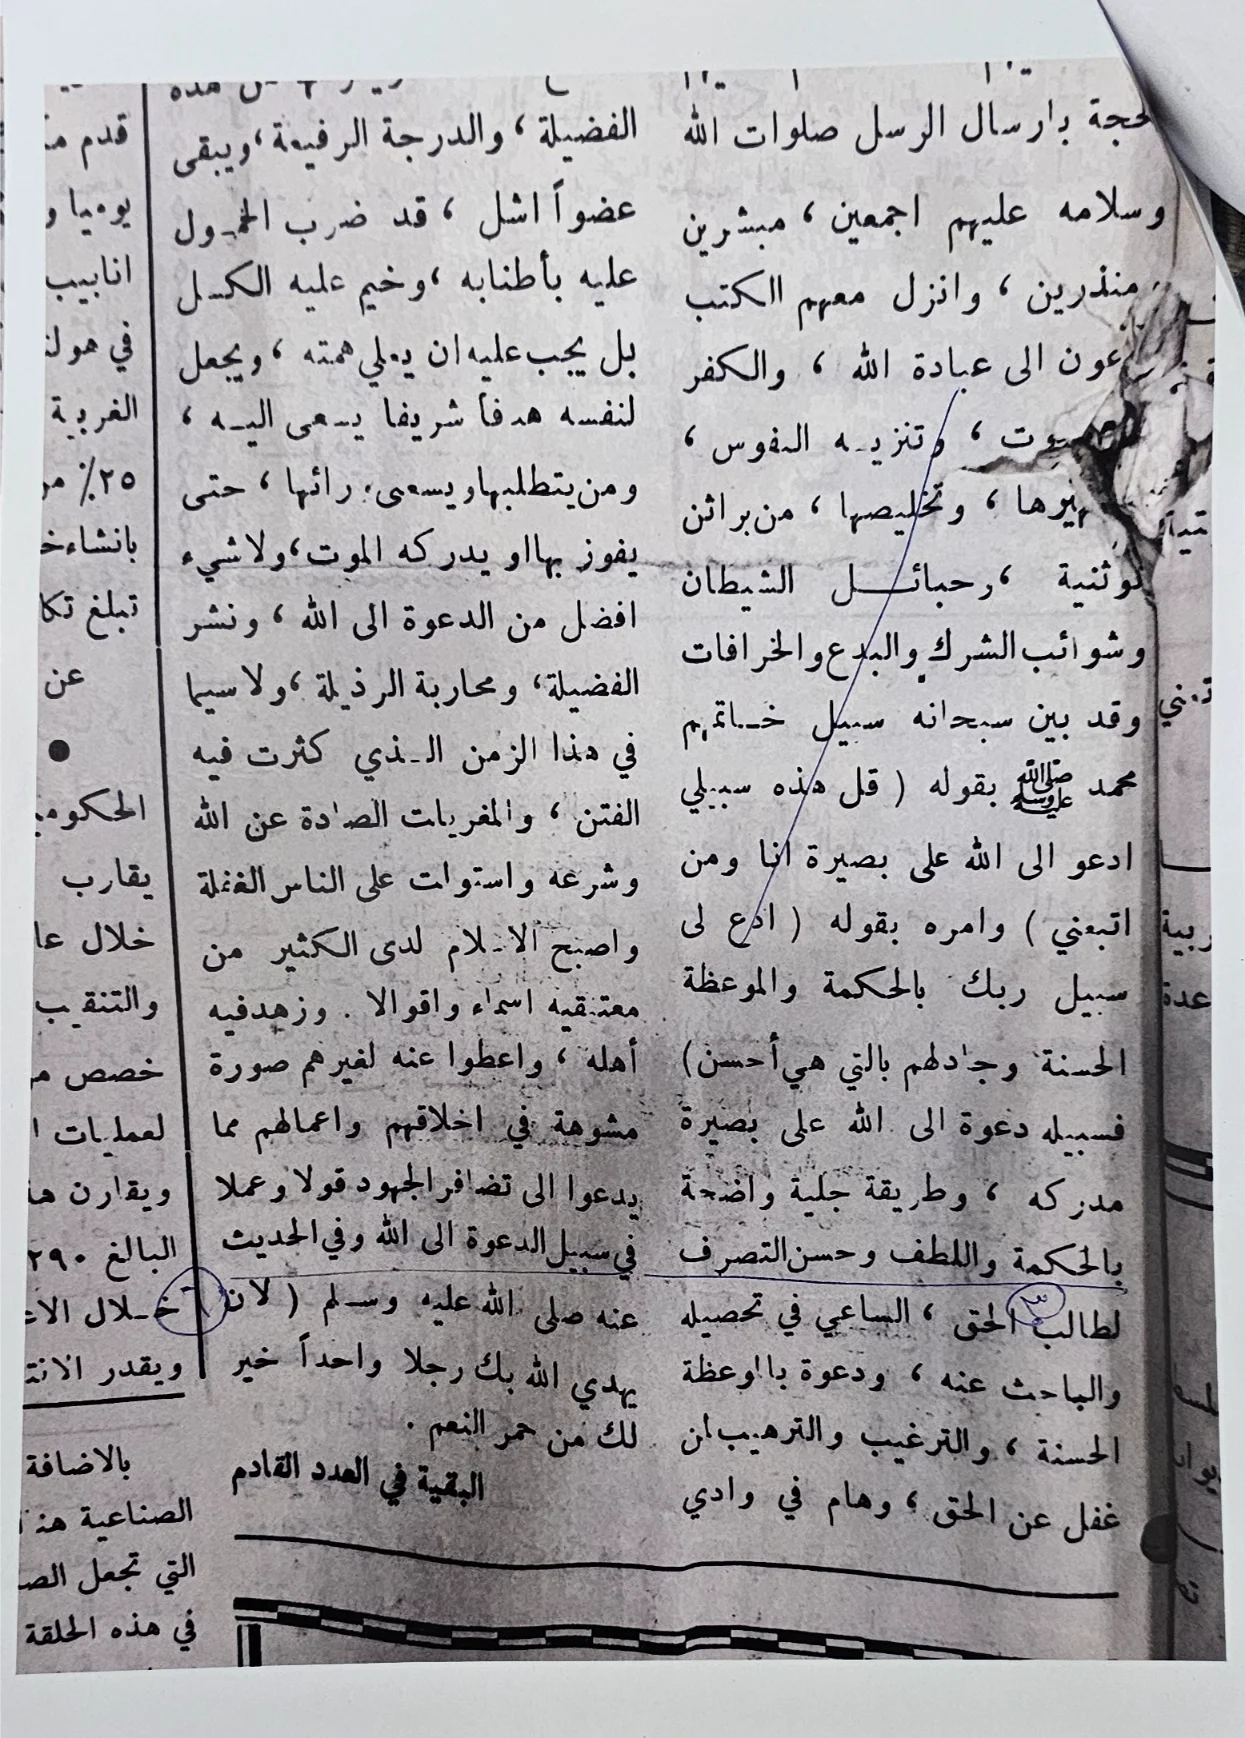 لحجة بارسال الرسل صلوات الله
وسلامه عليهم اجمعين ، مبشرين
منذرين ، وانزل معهم الكتب
عون الى عبادة الله ، والكفر
وتنزيه النفوس ،
هيرها ، وتخليصها ، من براثن
لوثنية ، وحبائل الشيطان
وشوائب الشرك والبدع والخرافات
وقد بين سبحانه سبيل خاتمهم
محمد ﷺ بقوله ( قل هذه سبيلي
ادعو الى الله على بصيرة انا ومن
اتبعني ) وامره بقوله ( ادع لى
سبيل ربك بالحكمة والموعظة
الحسنة وجادلهم بالتي هي أحسن)
فسبيله دعوة الى الله على بصيرة
مدركه ، وطريقة جلية واضحة
بالحكمة واللطف وحسن التصرف
لطالب الحق ، الساعي في تحصيله
والباحث عنه ، ودعوة بالوعظة
الحسنة ، والترغيب والترهيب لن
غفل عن الحق ، وهام في وادي
الفضيلة ، والدرجة الرفيعة ، ويبقى
عضواً اشل ، قد ضرب الخمول
عليه بأطنابه ، وخيم عليه الكسل
بل يجب عليه ان يعلي همته ، ويجعل
لنفسه هدفا شريفا يسعى اليه ،
ومن يتطلبها ويسعى ورائها ، حتى
يفوز بها او يدركه الموت ، ولا شيء
افضل من الدعوة الى الله ، ونشر
الفضيلة ، ومحاربة الرذيلة ، ولا سيما
في هذا الزمن الذي كثرت فيه
الفتن ، والمغريات الصادة عن الله
وشرعه واستوات على الناس الغفلة
واصبح الاسلام لدى الكثير من
معتنقيه اسماء واقوالا . وزهد فيه
أهله ، واعطوا عنه لغيرهم صورة
مشوهة في اخلاقهم واعمالهم مما
يدعوا الى تضافر الجهود قولا وعملا
في سبيل الدعوة الى الله وفي الحديث
عنه صلى الله عليه وسلم ( لان
يهدي الله بك رجلا واحداً خير
لك من حمر النعم .
البقية في العدد القادم
قدم
يوميا و
انابيب
في هول
الغربية
٢٥٪ مر
بانشاء خ
تبلغ تكا
عن
الحكومي
يقارب
خلال عا
والتنقيب
خصص مر
لعمليات ا
ويقارن ها
البالغ ٢٩٠
خلال الاع
ويقدر الانت
بالاضافة
الصناعية هذ
التي تجعل الص
في هذه الحلقة